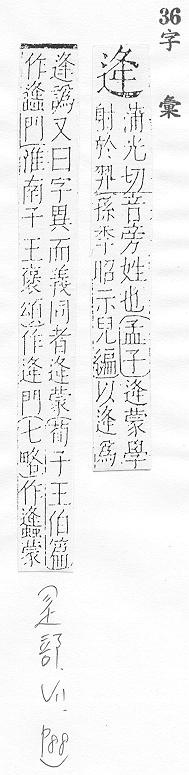 36 字彙
逄
蒲光切音旁姓也孟子逄蒙學
射於羿孫季昭示兒編以逄爲
逄譌又曰字異而義同者逄蒙荀子王伯篇
作蠭門淮南子王褒頌作逄門七略作蠭蒙
(辵部, VII, P88)